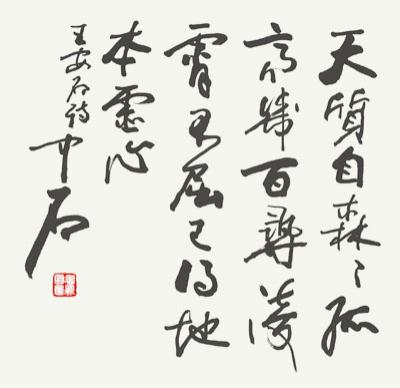 天質自森〻孤
高幾百尋凌
霄不屈己得地
本虛心
王安石詩 中石